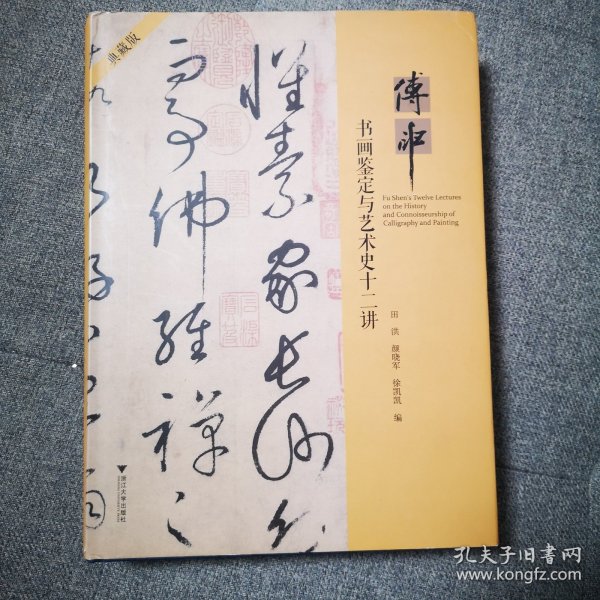 典藏版
懐素家长沙幼
而事佛经禅之
傅申
书画鉴定与艺术史十二讲
Fu Shen's Twelve Lectures
on the History
and Connoisseurship of
Calligraphy and Painting
田 洪 颜晓军 徐凯凯 编
浙江大学出版社
孔夫子旧书网
www.kongfz.com